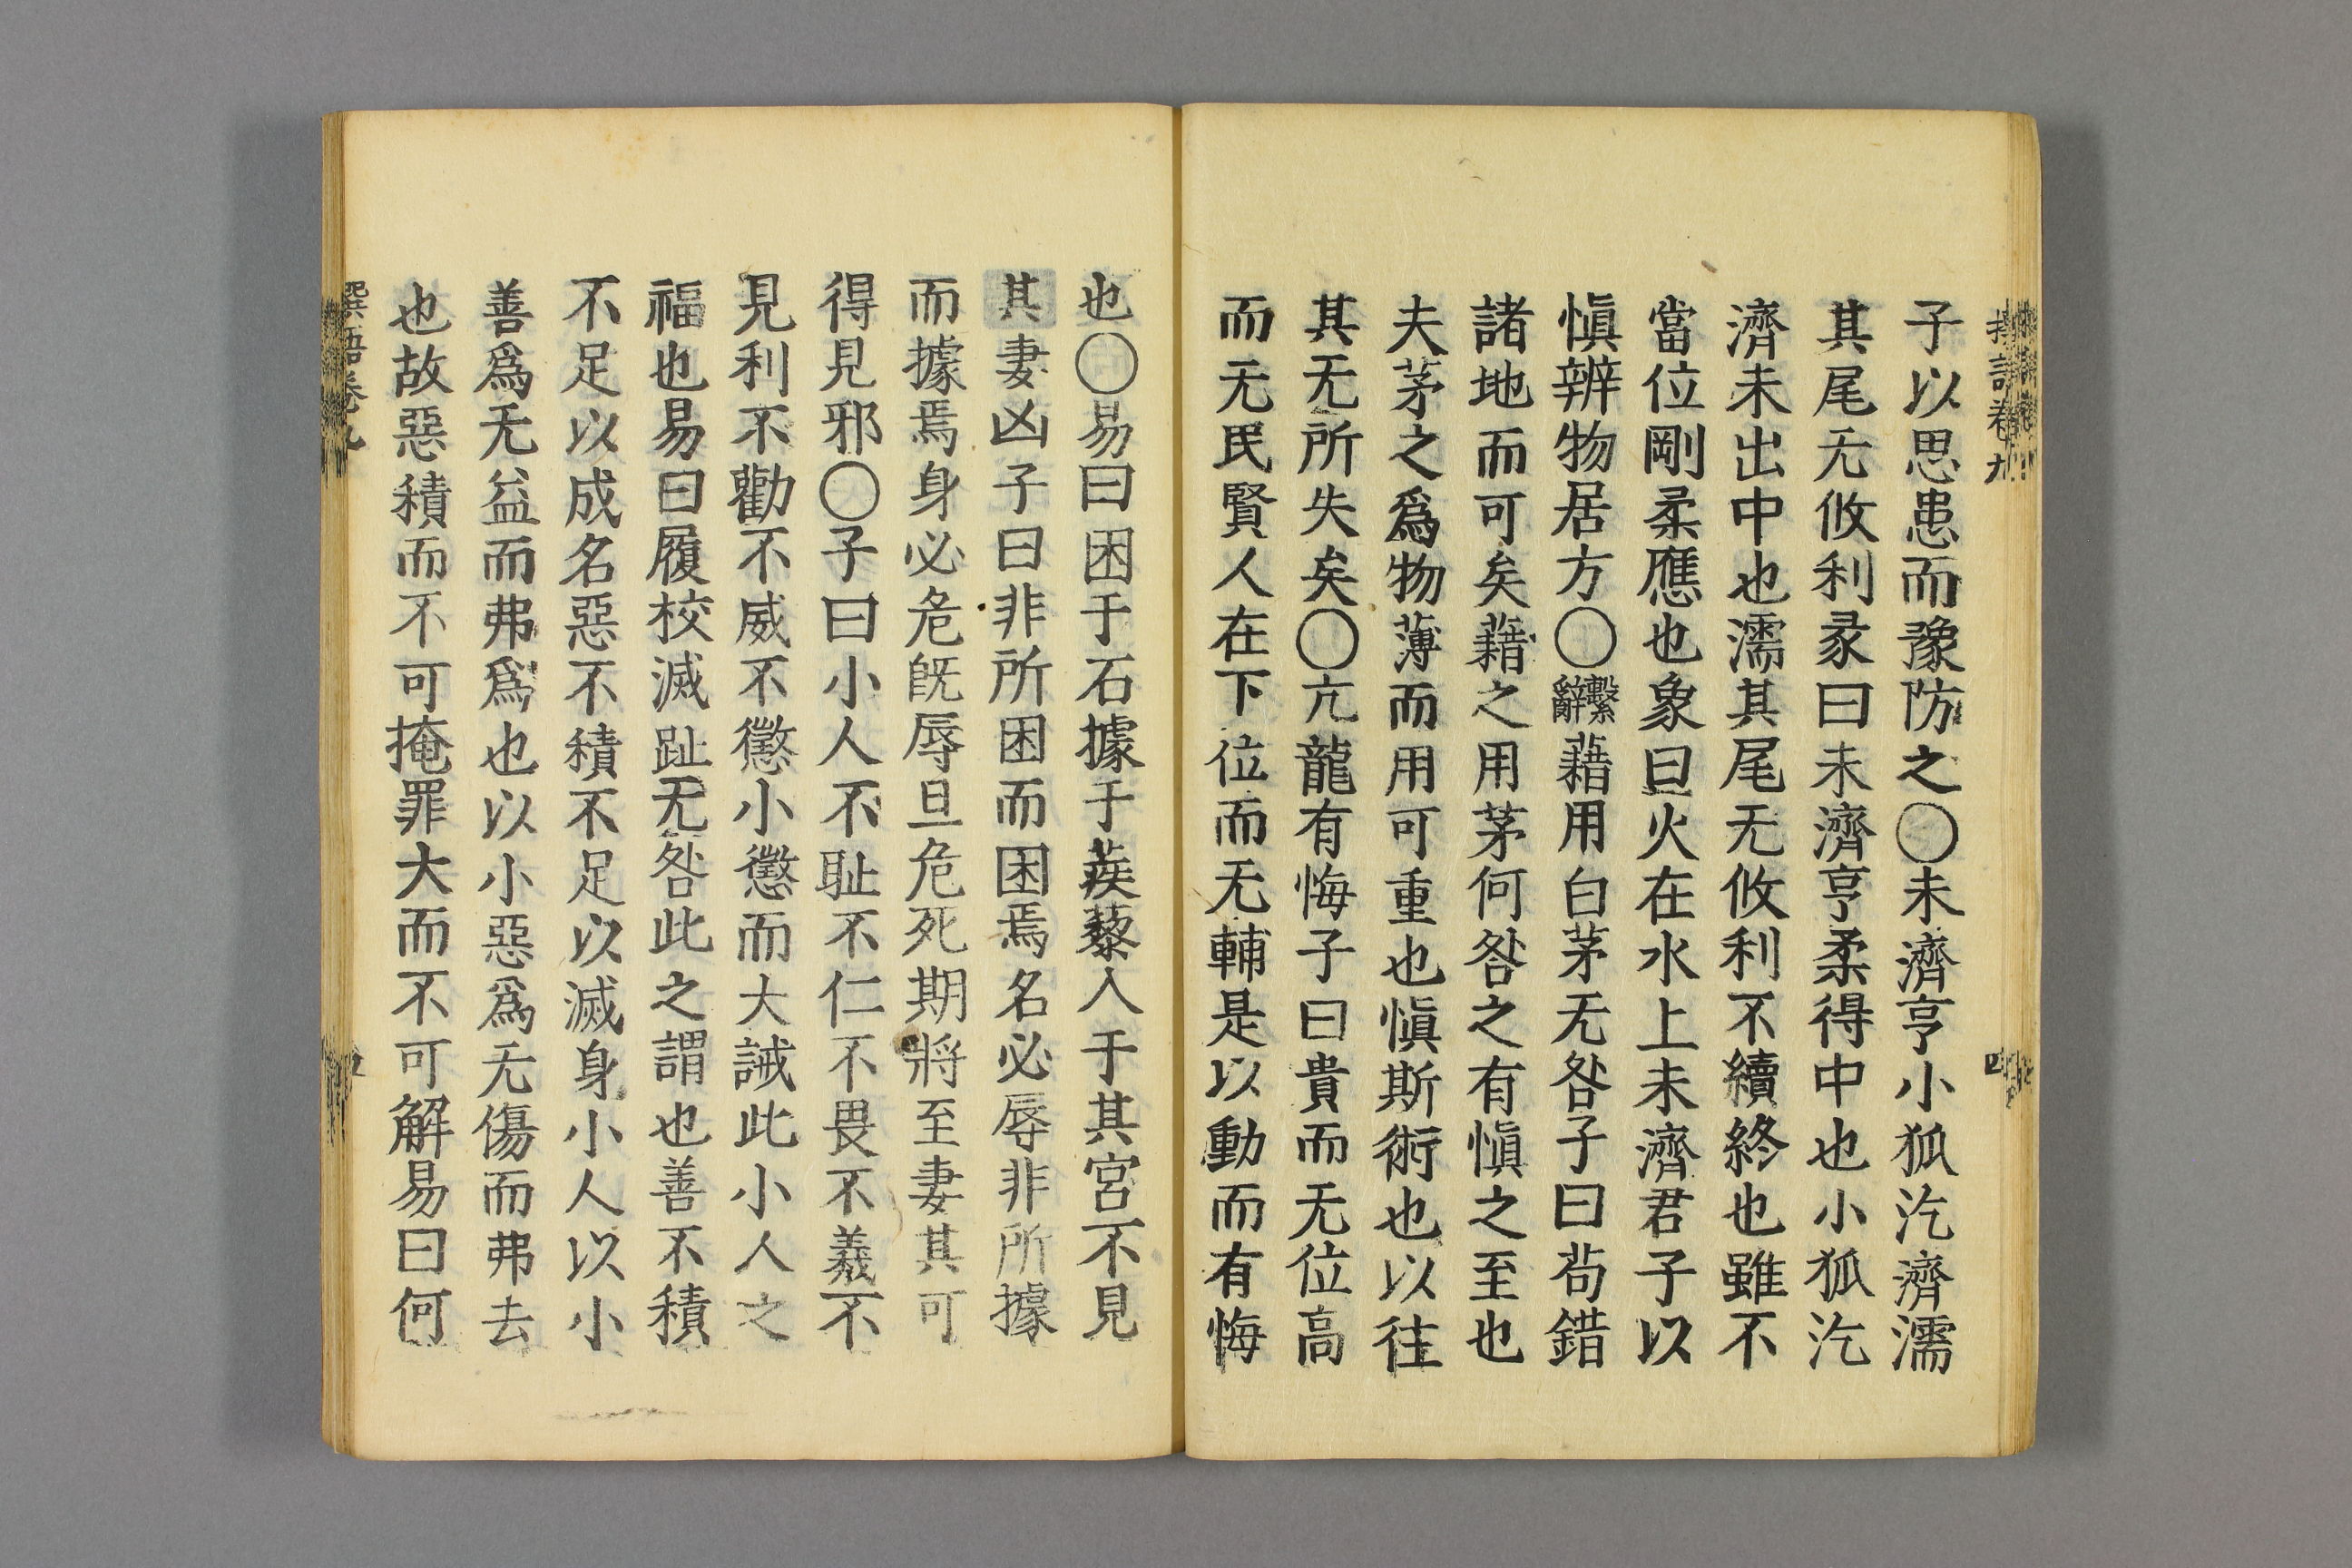 子以思患而豫防之〇未濟亨小狐汔濟濡
其尾无攸利彖曰未濟亨柔得中也小狐汔
濟未出中也濡其尾无攸利不續終也雖不
當位剛柔應也象曰火在水上未濟君子以
愼辨物居方〇繫辭藉用白茅无咎子曰苟錯
諸地而可矣藉之用茅何咎之有愼之至也
夫茅之爲物薄而用可重也愼斯術也以往
其无所失矣〇亢龍有悔子曰貴而无位高
而无民賢人在下位而无輔是以動而有悔
也〇易曰困于石據于蒺藜入于其宮不見
其妻凶子曰非所困而困焉名必辱非所據
而據焉身必危旣辱且危死期將至妻其可
得見邪〇子曰小人不耻不仁不畏不義不
見利不勸不威不懲小懲而大誡此小人之
福也易曰履校滅趾无咎此之謂也善不積
不足以成名惡不積不足以滅身小人以小
善爲无益而弗爲也以小惡爲无傷而弗去
也故惡積而不可掩罪大而不可解易曰何